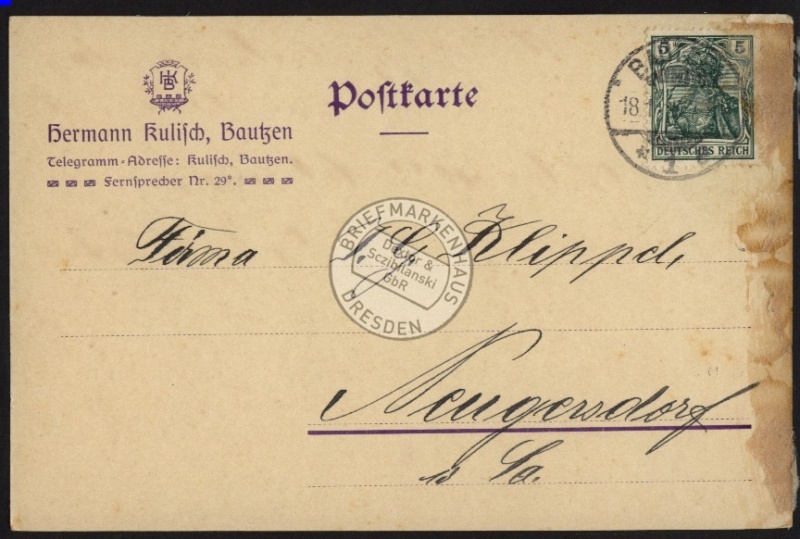 HKB
Hermann Kulisch, Bautzen
Telegramm-Adresse: Kulisch, Bautzen.
Fernsprecher Nr. 29*.
Postkarte
5 5
DEUTSCHES REICH
18.
* 1
Firma Klippel,
Neugersdorf
i/ Sa.
BRIEFMARKENHAUS
Sczibilanski
GbR
DRESDEN